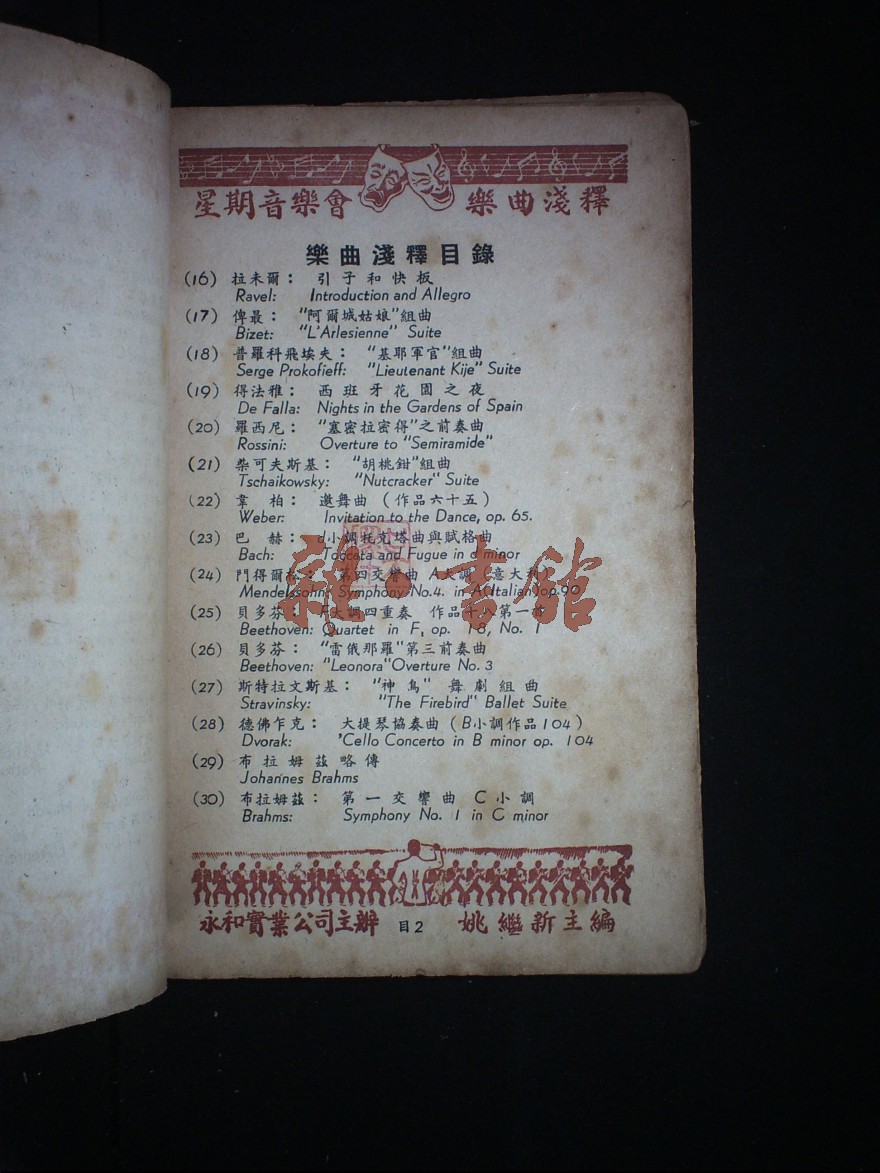 星期音樂會 樂曲淺釋
樂曲淺釋目錄
(16) 拉未爾： 引子和快板
Ravel: Introduction and Allegro
(17) 俾最： "阿爾城姑娘"組曲
Bizet: "L'Arlesienne" Suite
(18) 普羅科飛埃夫： "基耶軍官"組曲
Serge Prokofieff: "Lieutenant Kije" Suite
(19) 得法雅： 西班牙花園之夜
De Falla: Nights in the Gardens of Spain
(20) 羅西尼： "塞密拉密得"之前奏曲
Rossini: Overture to "Semiramide"
(21) 柴可夫斯基： "胡桃鉗"組曲
Tschaikowsky: "Nutcracker" Suite
(22) 韋柏： 邀舞曲（作品六十五）
Weber: Invitation to the Dance, op. 65.
(23) 巴赫： d小調牦克塔曲與賦格曲
Bach: Toccata and Fugue in d minor
(24) 門得爾松： 第四交響曲 A大調 意大利
Mendelssohn: Symphony No.4. in A(Italian)op.90
(25) 貝多芬： F大調四重奏 作品 第一首
Beethoven: Quartet in F, op. 18, No. 1
(26) 貝多芬： "雷俄那羅"第三前奏曲
Beethoven: "Leonora"Overture No. 3
(27) 斯特拉文斯基： "神鳥" 舞劇組曲
Stravinsky: "The Firebird" Ballet Suite
(28) 德佛乍克： 大提琴協奏曲（B小調作品104）
Dvorak: 'Cello Concerto in B minor op. 104
(29) 布拉姆茲略傳
Johannes Brahms
(30) 布拉姆茲： 第一交響曲 C小調
Brahms: Symphony No. 1 in C minor
永和實業公司主辦 目2 姚繼新主編
雜·書館